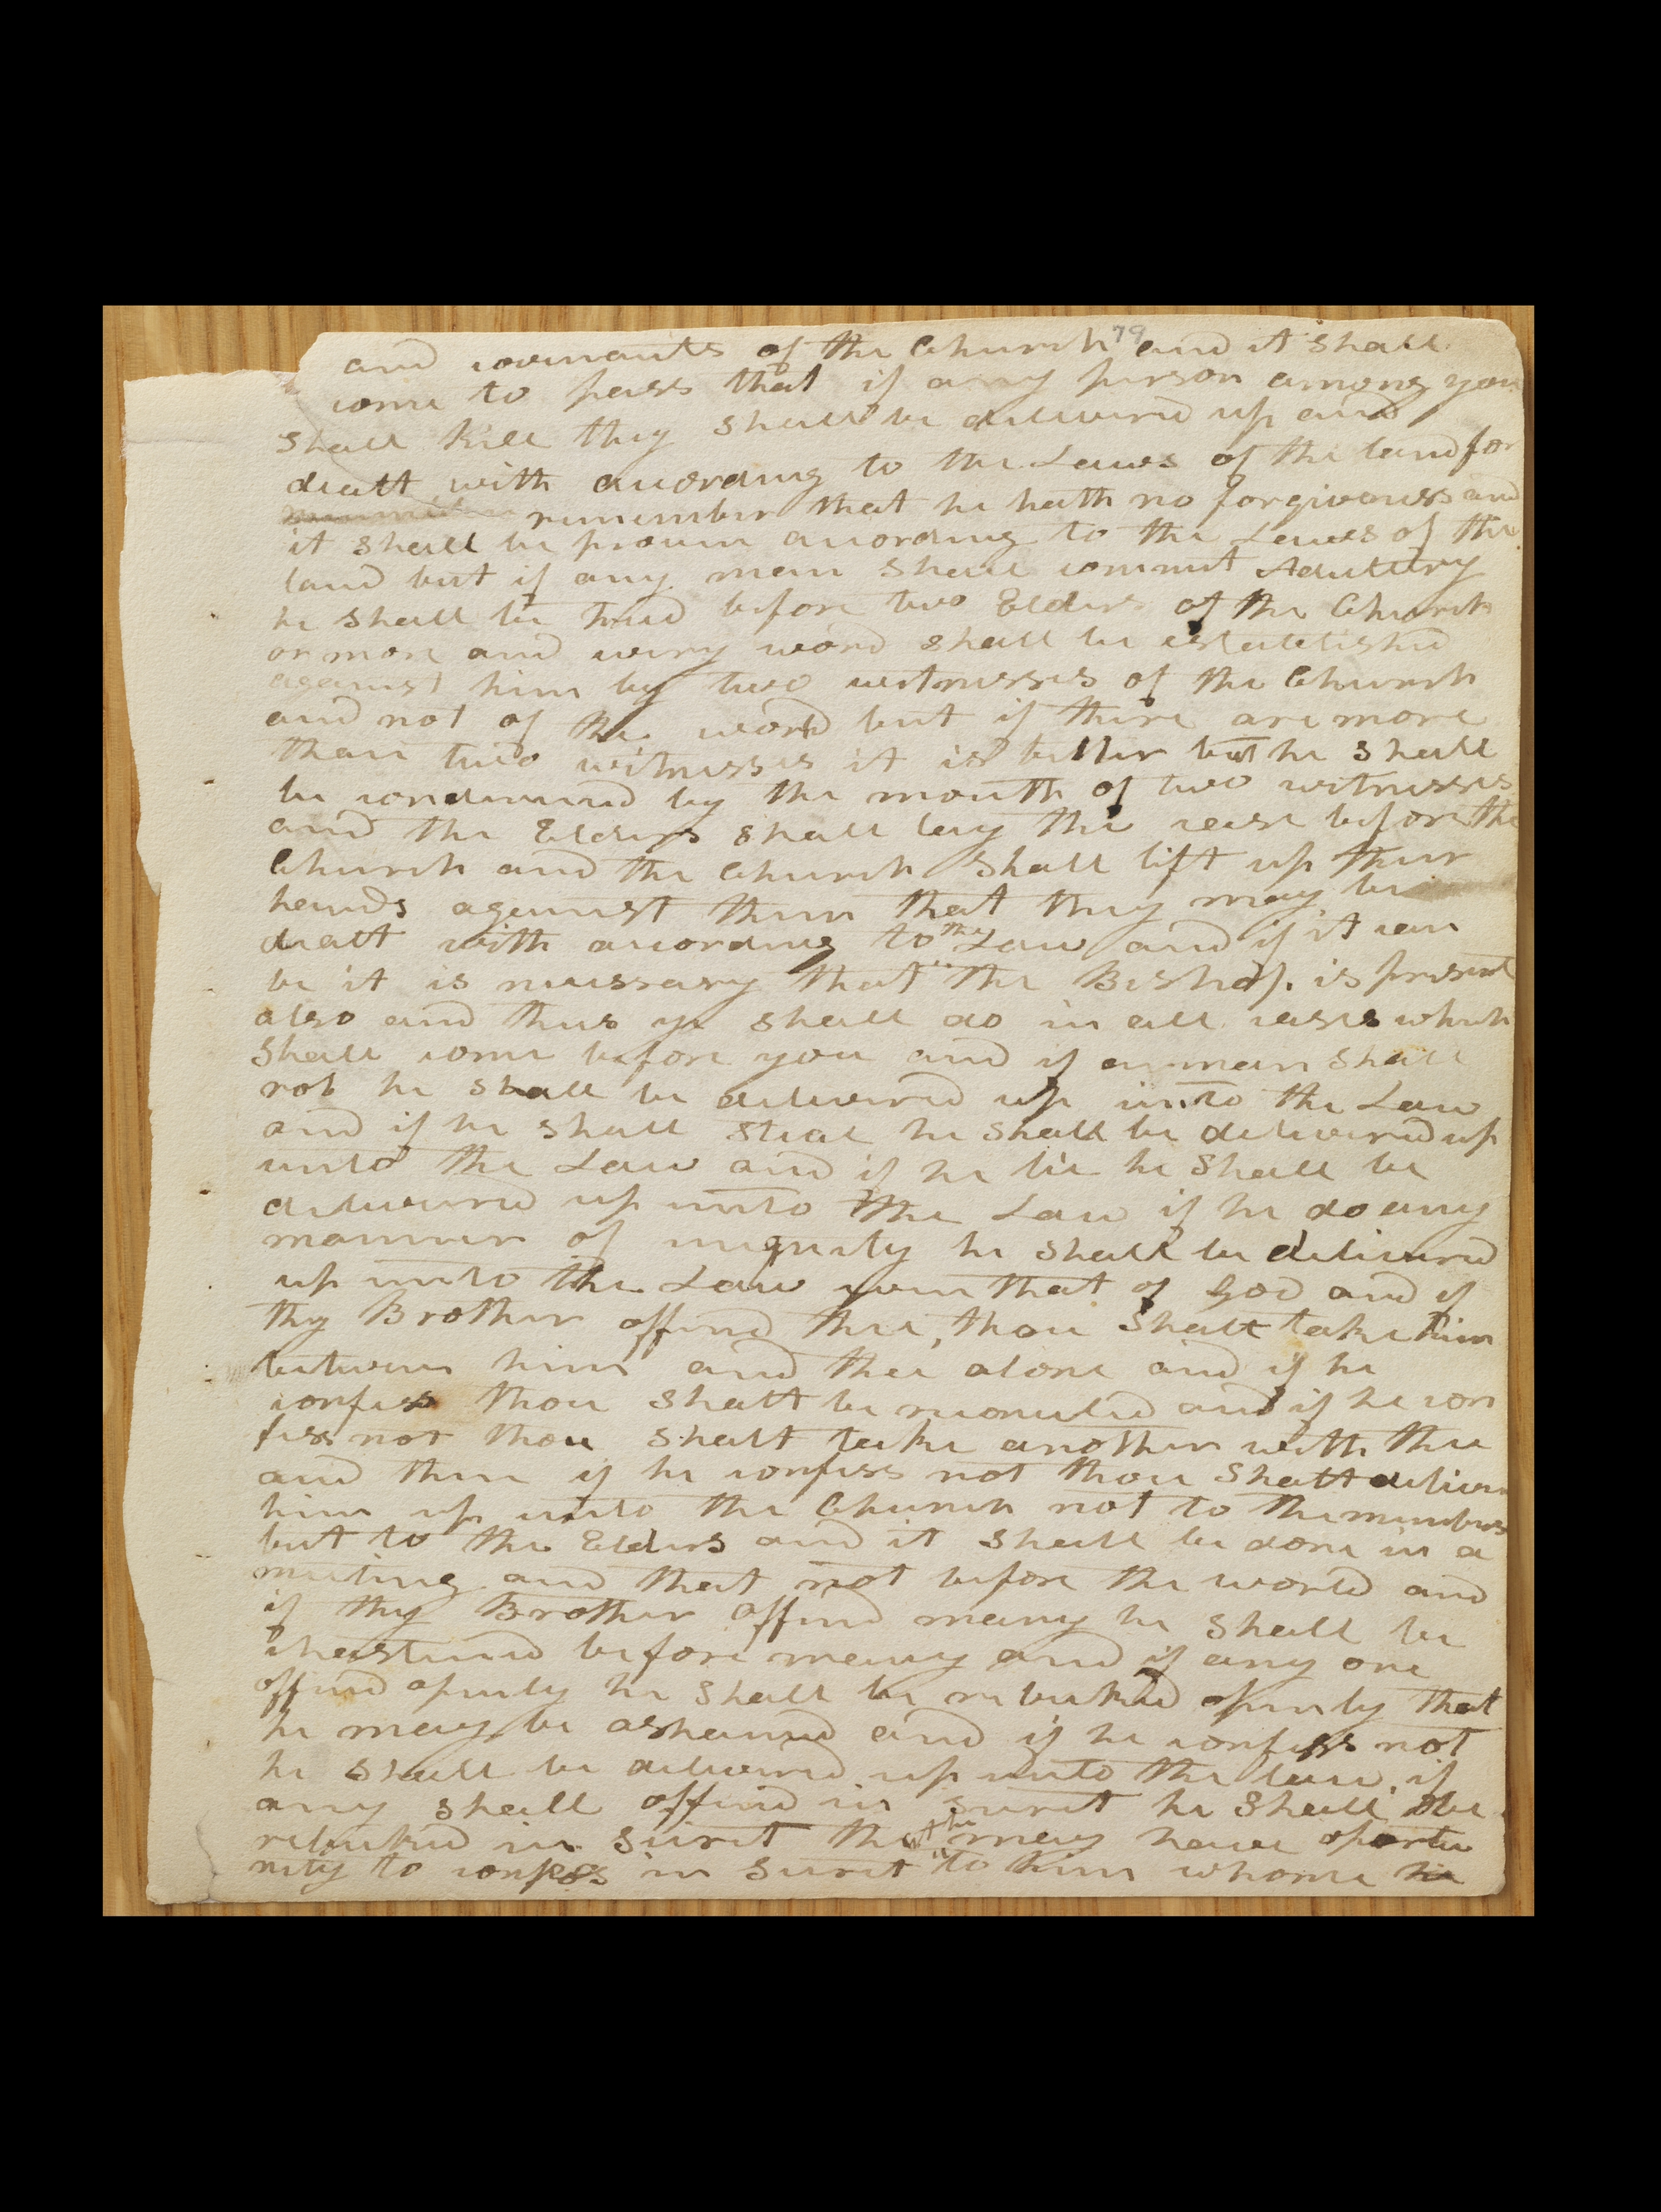 and covenants of the Church 79 and it shall
come to pass that if any person among you
shall kill they shall be delivered up and
dealt with according to the Laws of the land for
remember that he hath no forgiveness and
it shall be proven according to the Laws of the
land but if any man shall commit Adultery
he shall be tried before two Elders of the Church
or more and every word shall be established
against him by two witnesses of the Church
and not of the world but if there are more
than two witnesses it is better but he shall
be condemned by the mouth of two witnesses
and the Elders shall lay the case before the
Church and the Church shall lift up their
hands against them that they may be
dealt with according to the Law and if it can
be it is necessary that the Bishop. is present
also and thus ye shall do in all cases which
shall come before you and if a man shall
rob he shall be delivered up unto the Law
and if he shall steal he shall be delivered up
unto the Law and if he lie he shall be
delivered up unto the Law if he do any
manner of iniquity he shall be delivered
up unto the Law even that of God and if
thy Brother offend thee, thou shalt take him
between him and thee alone and if he
confess thou shalt be reconciled and if he con
fess not thou shalt take another with thee
and then if he confess not thou shalt deliver
him up unto the Church not to the members
but to the Elders and it shall be done in a
meeting and that not before the world and
if thy Brother offend many he shall be
chastened before many and if any one
offend openly he shall be rebuked openly that
he may be ashamed and if he confess not
he shall be delivered up unto the law. if
any shall offend in secret he shall be
rebuked in secret that he may have oportu
nity to confess in secret to him whome he